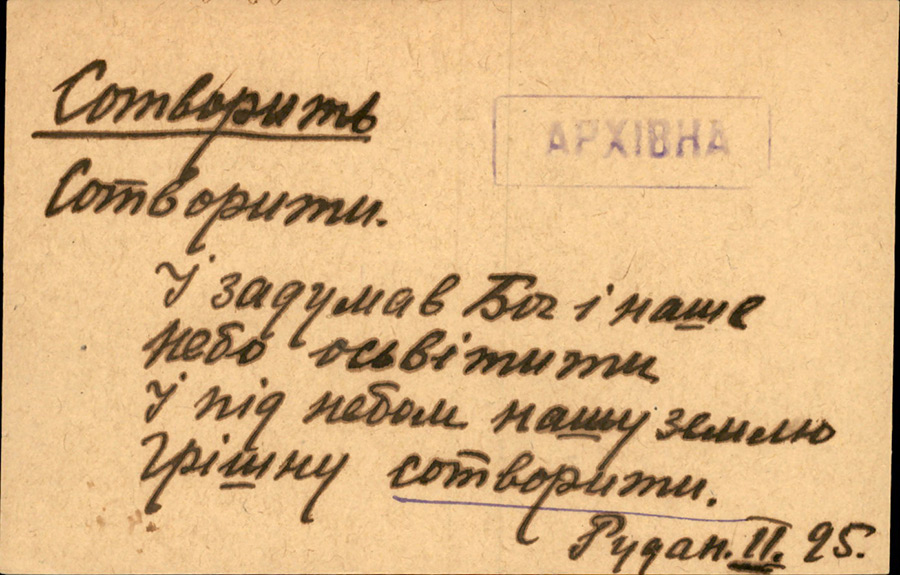 Сотворить
АРХІВНА
Сотворити.
І задумав Бог і наше
небо осьвітити
І під небом нашу землю
грішну сотворити.
Рудан. II. 95.